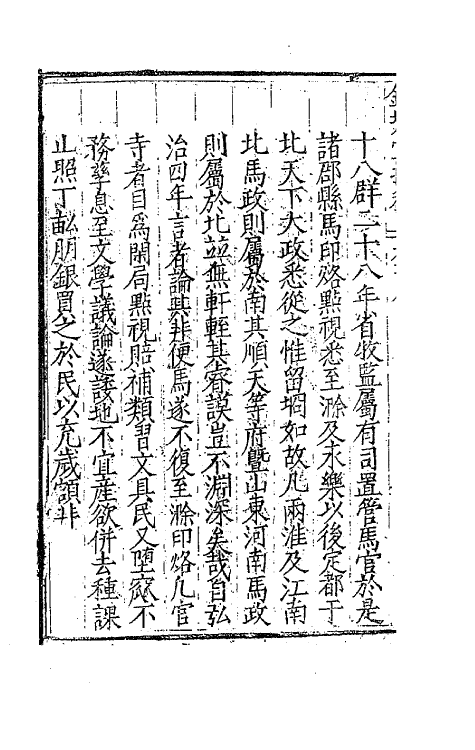 十八群二十八年省牧監屬有司置管馬官於是
諸郡縣馬印烙點視悉至滁及永樂以後定都于
北天下大政悉從之惟留堈如故凡兩淮及江南
北馬政則屬於南其順天等府暨山東河南馬政
則屬於北並無軒輊其睿謨豈不淵深矣哉自弘
治四年言者論其非便馬遂不復至滁印烙凡官
寺者目爲閑局點視賠補類習文具民又墮窳不
務孳息至文學議論遂諉地不宜産欲併去種課
止照丁畝朋銀買之於民以充歲額非